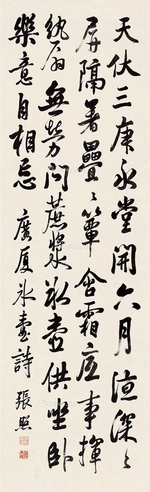 天伏三庚永堂開六月涼深〻
屏隔暑疊〻簟含霜底事揮
紈扇無勞問蔗漿冰壺供坐臥
樂意自相忘 廣厦冰壺詩 張照